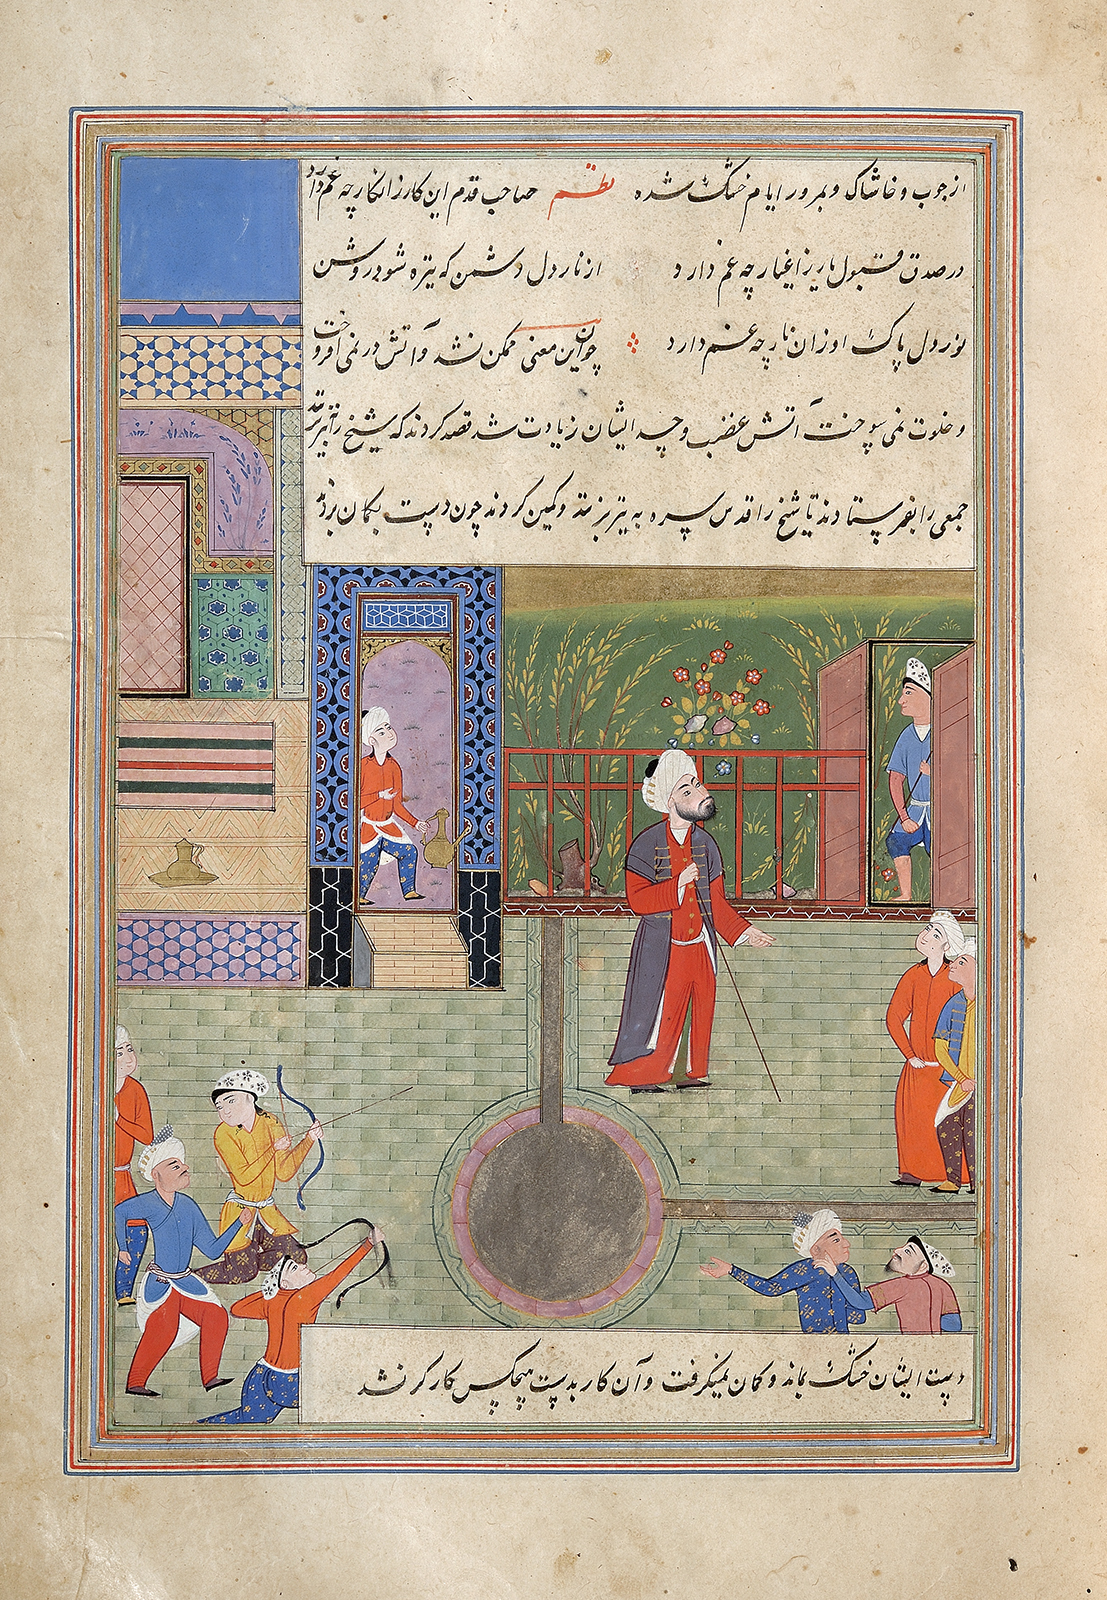 از چوب و خاشاک و بمرور ایام خشک شده نظم صاحب قدم این کار ز انکار چه غم دارد
در صدق و قبول یار ز اغیار چه غم دارد از نار دل دشمن که تیره شود روشن
نور دل پاک او زان نار چه غم دارد چون این معنی ممکن نشد و آتش در نمی افروخت
و خلوت نمی سوخت آتش غضب و حسد ایشان زیادت شد قصد کردند که شیخ را تیر زنند
جمعی را بفرستادند تا شیخ را قدس سره به تیر بزنند و کمین کردند چون دست بکمان بردند
دست ایشان خشک بماند و کمان نمیگرفت و آن کار بدست هیچکس کارگر نشد